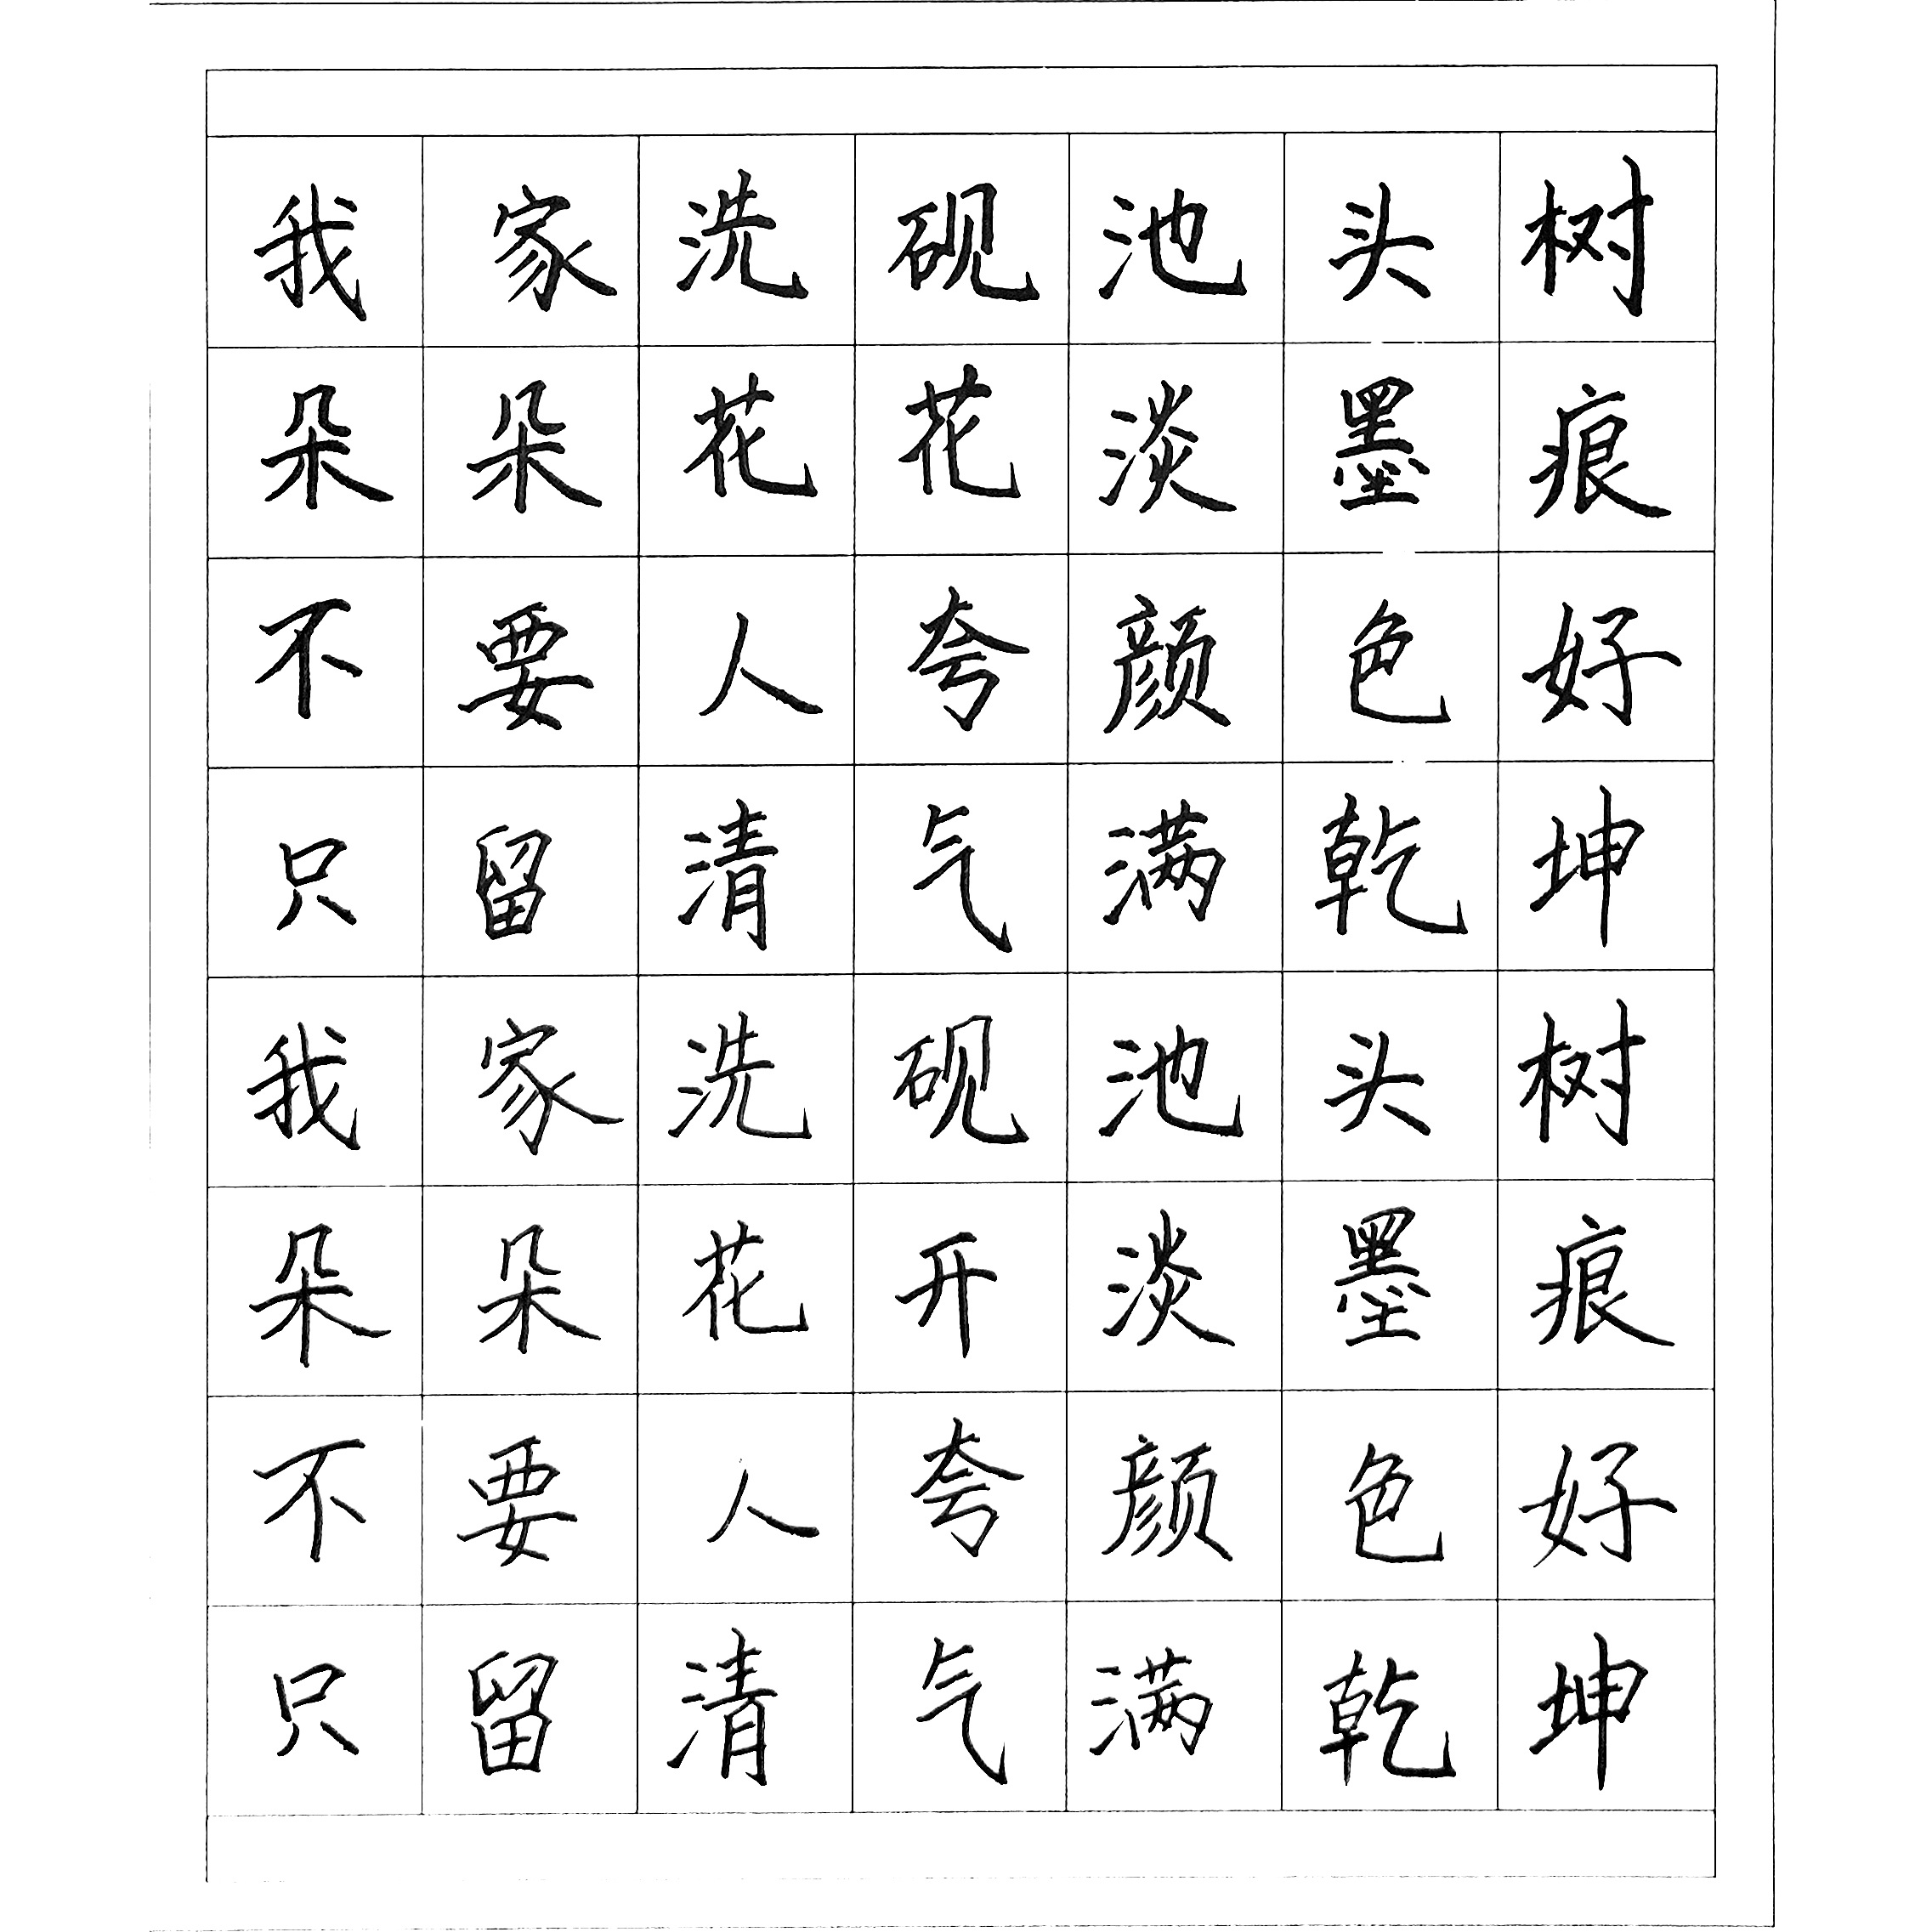 我家洗砚池头树
朵朵花花淡墨痕
不要人夸颜色好
只留清气满乾坤
我家洗砚池头树
朵朵花开淡墨痕
不要人夸颜色好
只留清气满乾坤